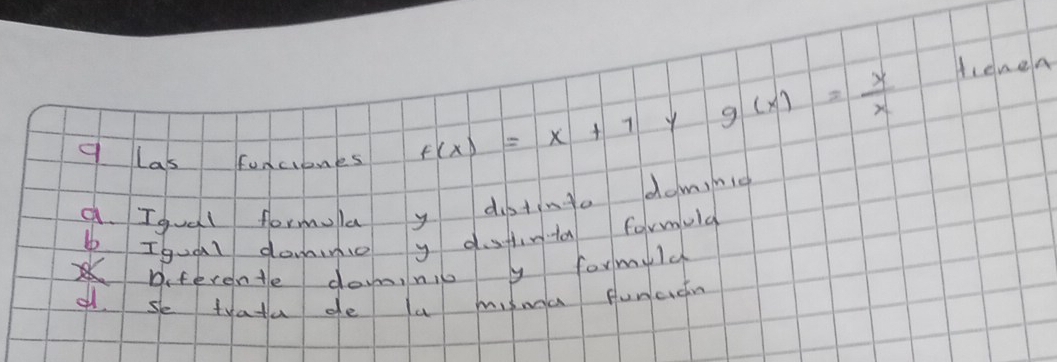 9 Las funciones f(x) = x + 1 y g(x) = x/x tienen
a. Igual formula y distinto dominio
b Igual dominio y distinta formula
Diferente dominio y formula
d. se trata de la misma función